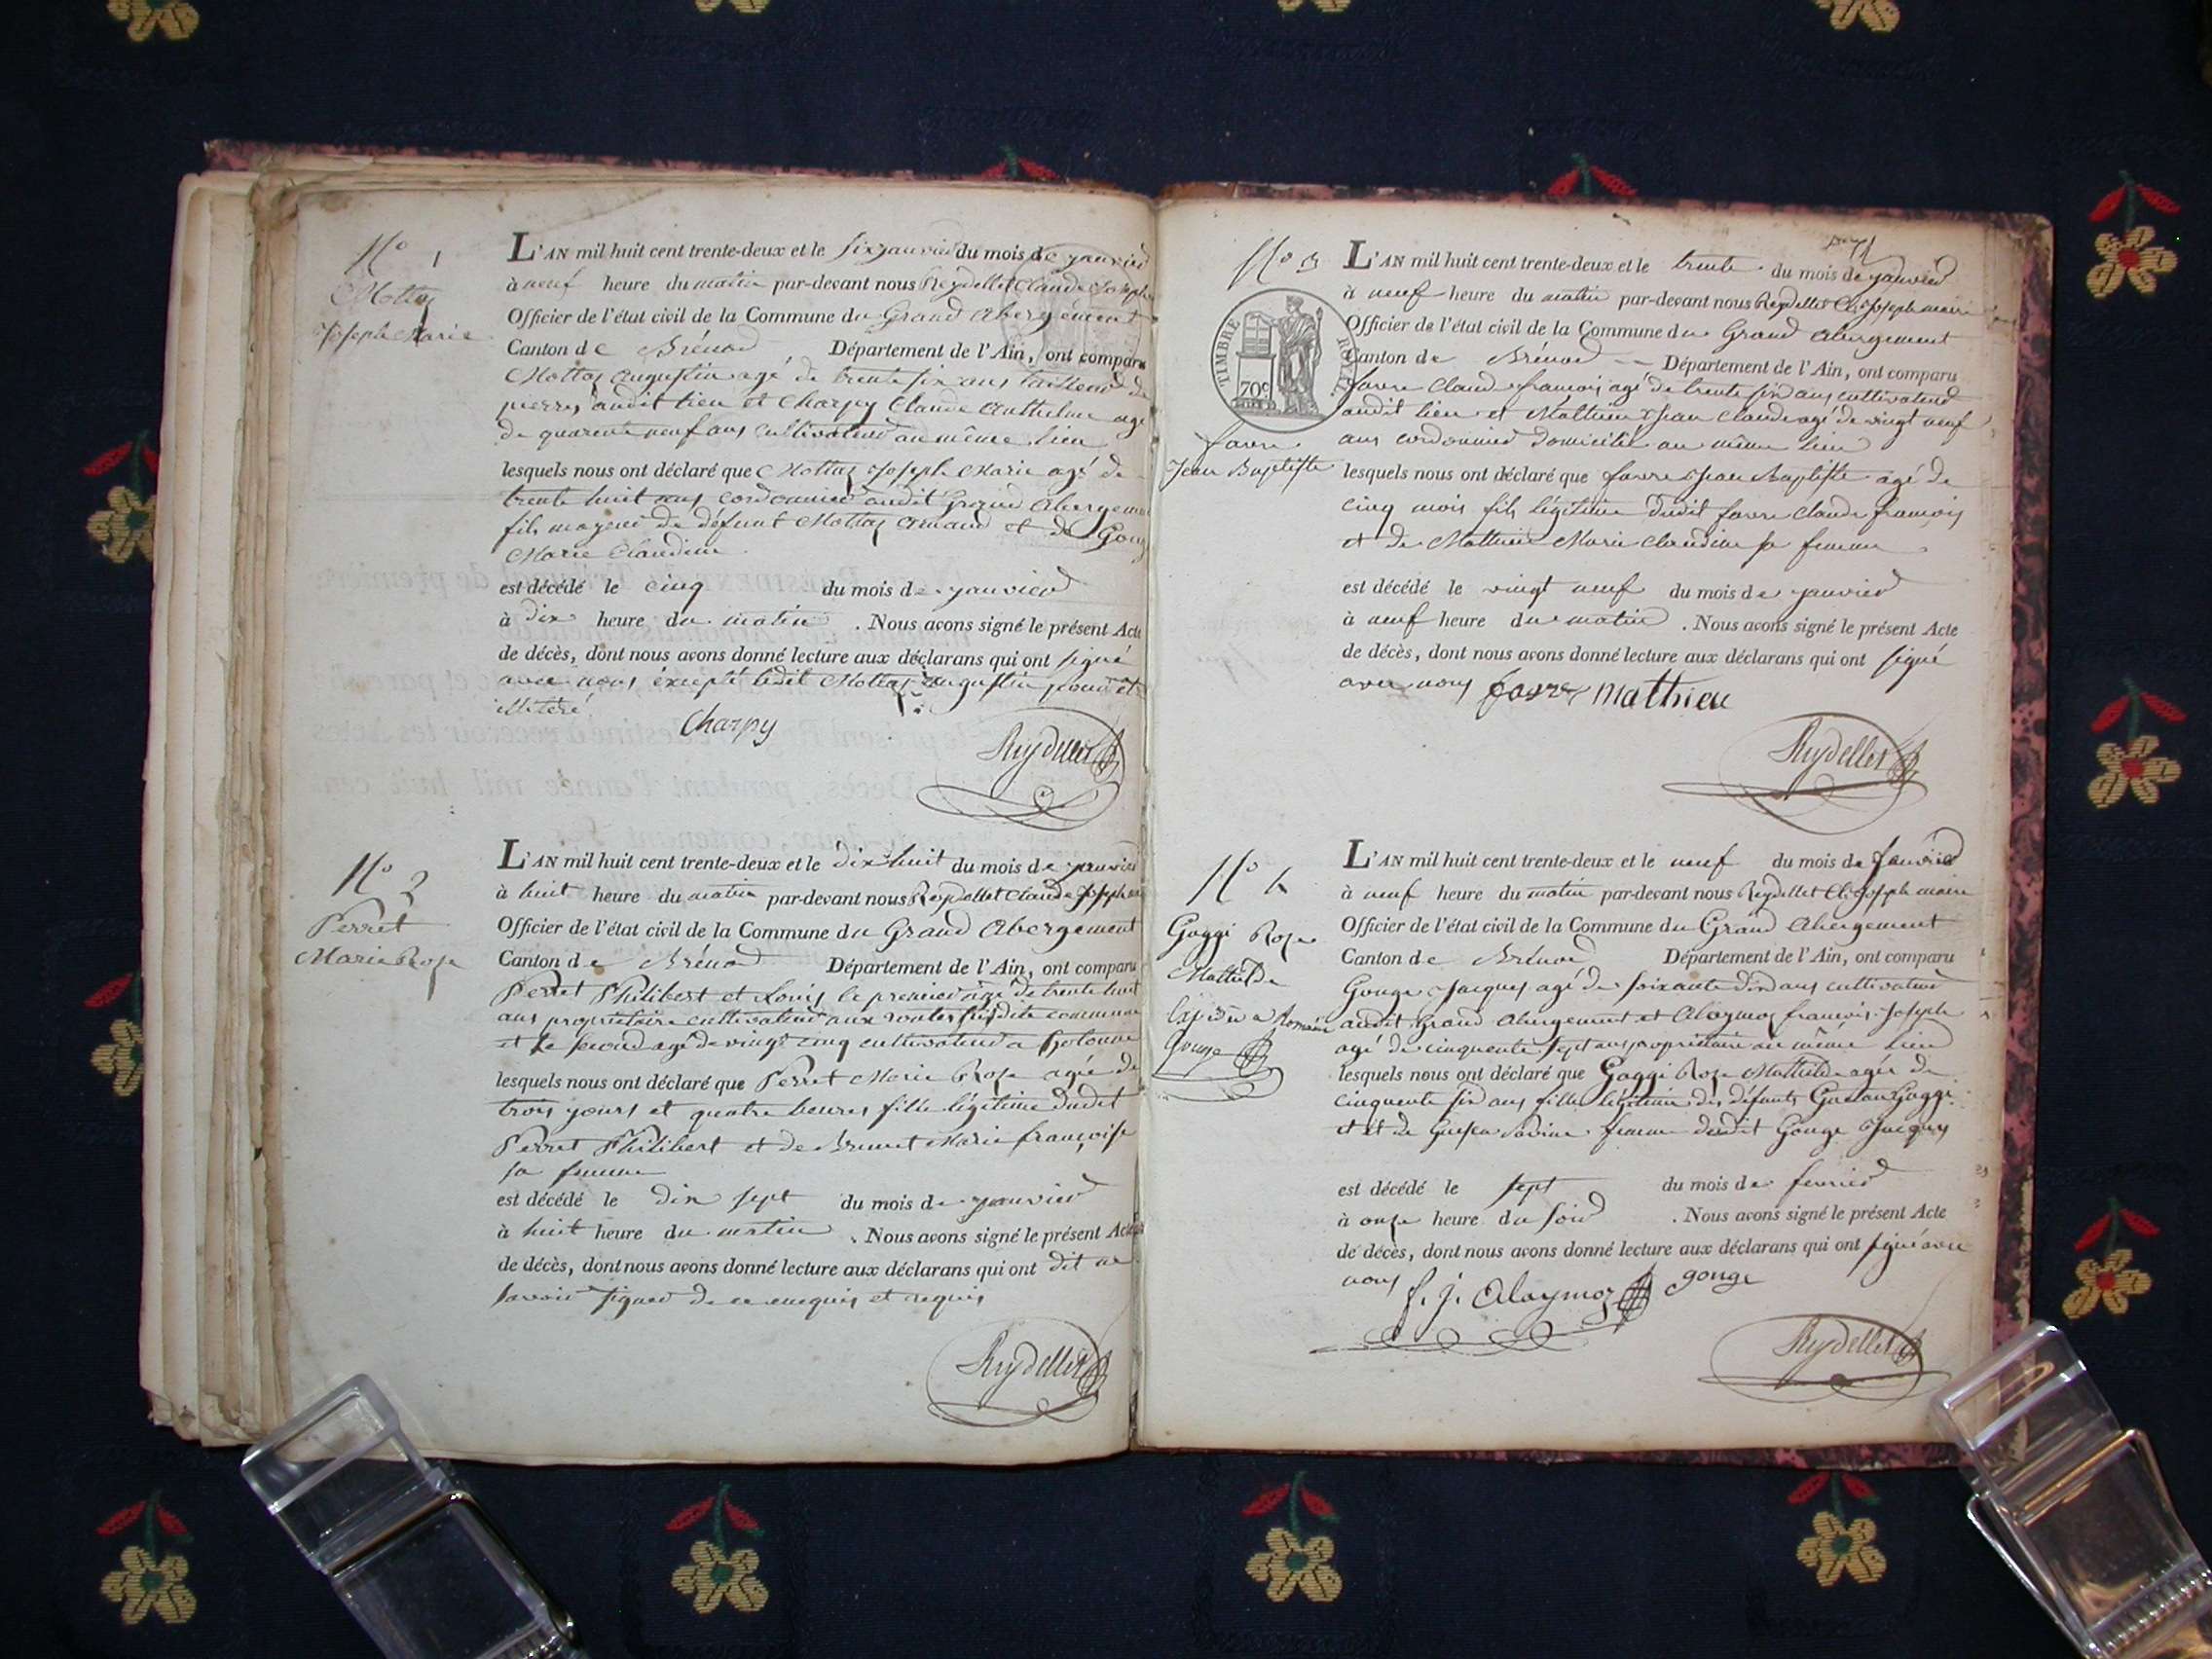 N° 1
Mottaz
Joseph Marie
L'AN mil huit cent trente-deux et le six janvier du mois de janvier
à neuf heure du matin par-devant nous Reydellet Claude Joseph
Officier de l'état civil de la Commune du Grand abergement
Canton de Brénod Département de l'Ain, ont comparu
Mottaz augustin agé de trente six ans tailleur de
pierres audit lieu et Charpy Claude Anthelme agé
de quarente neuf ans cultivateur au même lieu
lesquels nous ont déclaré que Mottaz Joseph Marie agé de
trente huit ans cordonnier audit grand abergement
fils majeur de défunt Mottaz Armand et de
Marie Claudine
est décédé le cinq du mois de janvier
à dix heure du matin . Nous avons signé le présent Acte
de décès, dont nous avons donné lecture aux déclarans qui ont signé
avec nous excepté ledit Mottaz augustin pour
illiteré
Charpy
Reydellet
N° 2
Perret
Marie Rose
L'AN mil huit cent trente-deux et le dix huit du mois de janvier
à huit heure du matin par-devant nous Reydellet Claude Joseph
Officier de l'état civil de la Commune du Grand Abergement
Canton de Brénod Département de l'Ain, ont comparu
Perret Philibert et Louis le premier agé de trente huit
ans propriétaire cultivateur aux routes susdite commune
et le second agé de vingt cinq cultivateur a hotonne
lesquels nous ont déclaré que Perret Marie Rose agée de
trois jours et quatre heures fille légitime dudit
Perret Philibert et de Brunet Marie françoise
sa femme
est décédé le dix sept du mois de janvier
à huit heure du matin . Nous avons signé le présent Acte
de décès, dont nous avons donné lecture aux déclarans qui ont dit ne
savoir signer de ce enquis et requis
Reydellet
N° 3
TIMBRE ROYAL
70c
favre
Jean Baptiste
L'AN mil huit cent trente-deux et le trente du mois de janvier
à neuf heure du matin par-devant nous Reydellet Cl. Joseph maire
Officier de l'état civil de la Commune du Grand abergement
Canton de Brénod Département de l'Ain, ont comparu
favre Claude françois agé de trente six ans cultivateur
audit lieu et Mathieu Jean Claude agé de vingt neuf
ans cordonnier domicilié au même lieu
lesquels nous ont déclaré que favre Jean Baptiste agé de
cinq mois fils légitime dudit favre Claude françois
et de Mathieu Marie Claudine sa femme
est décédé le vingt neuf du mois de janvier
à neuf heure du matin . Nous avons signé le présent Acte
de décès, dont nous avons donné lecture aux déclarans qui ont signé
avec nous favre Mathieu
Reydellet
N° 4
Goggi Rose
Mathilde
Expédié a Romain
Gouge
L'AN mil huit cent trente-deux et le neuf du mois de février
à neuf heure du matin par-devant nous Reydellet Cl. Joseph maire
Officier de l'état civil de la Commune du Grand Abergement
Canton de Brénod Département de l'Ain, ont comparu
Gouge Jacques agé de soixante dix ans cultivateur
audit Grand abergement et Aloymoz françois Joseph
agé de cinquente sept ans propriétaire au même lieu
lesquels nous ont déclaré que Goggi Rose Mathilde agée de
cinquente six ans fille légitime des défunts Goggi
et de femme dudit Gouge Jacques
est décédé le sept du mois de fevrier
à onze heure du soir . Nous avons signé le présent Acte
de décès, dont nous avons donné lecture aux déclarans qui ont signé avec
nous f. j. Aloymoz gouge
Reydellet